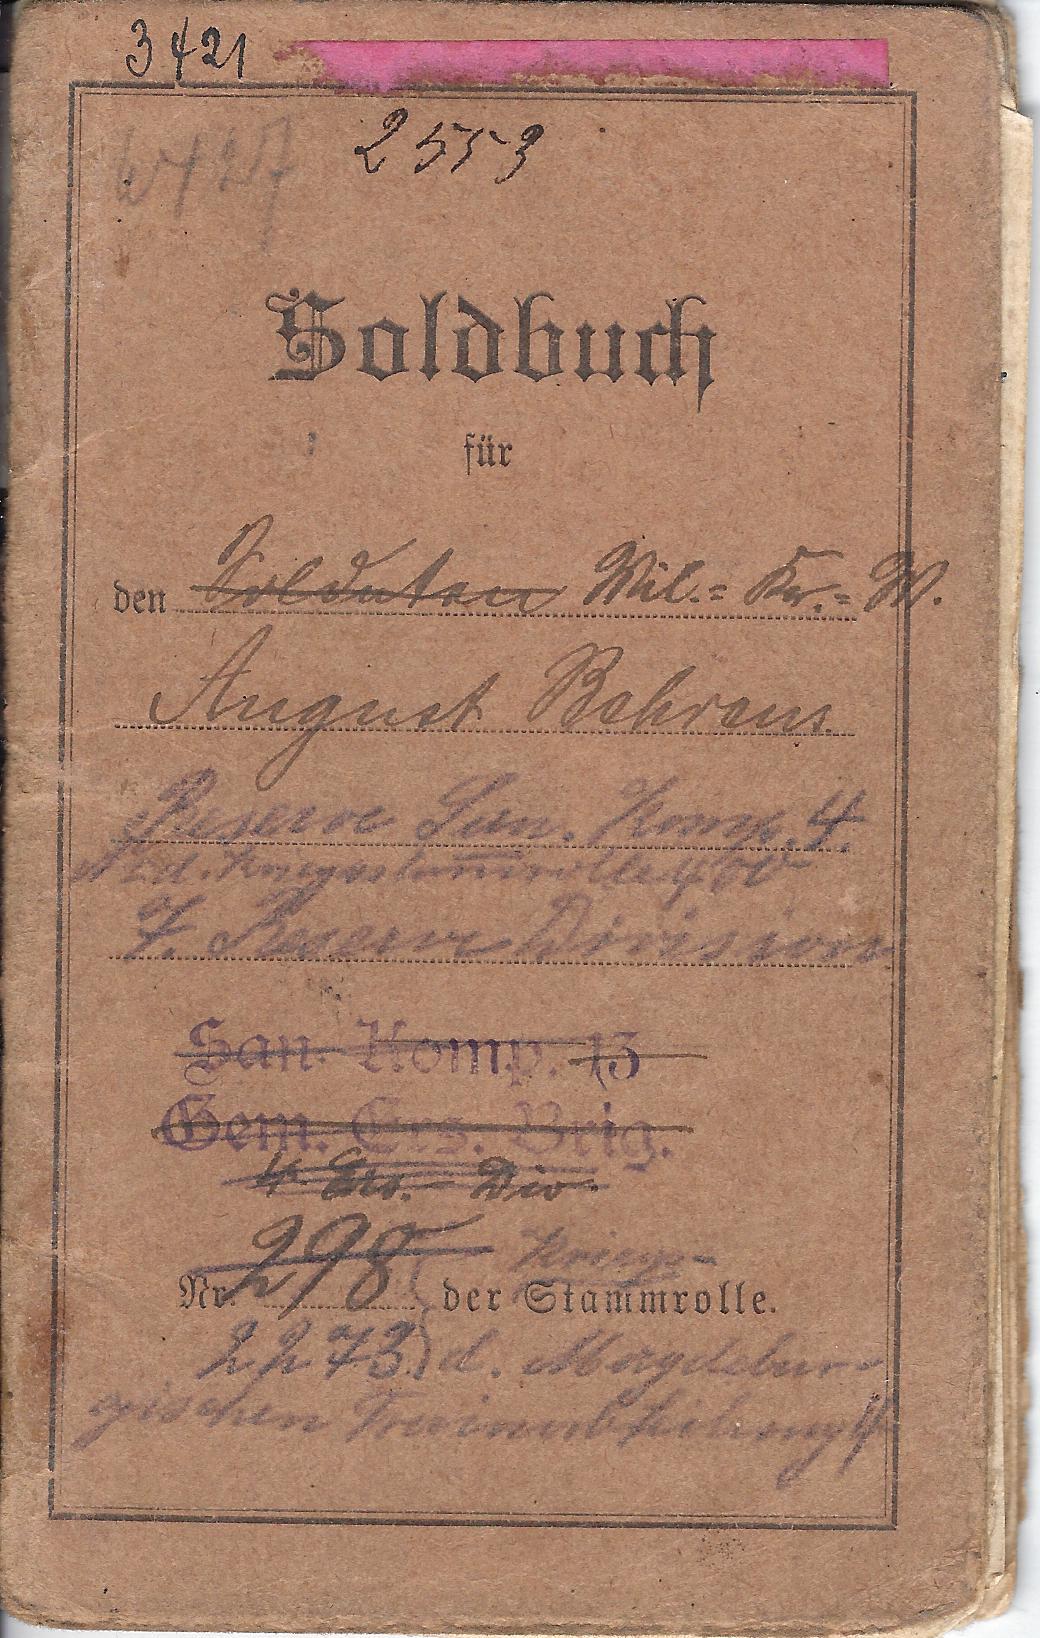 3421
2553
Soldbuch
für
den Soldaten Mil.= Kr.= W.
August Behrens.
Reserve San. Komp. 4.
Nr. d. Kriegsstammrolle 460
7. Reserve Division
San. Komp. 13
Gem. Ers. Brig.
4. Ers.- Div.
298 Kriegs-
Nr. der Stammrolle.
2273. d. Magdebur-
gischen Trainabteilung 4